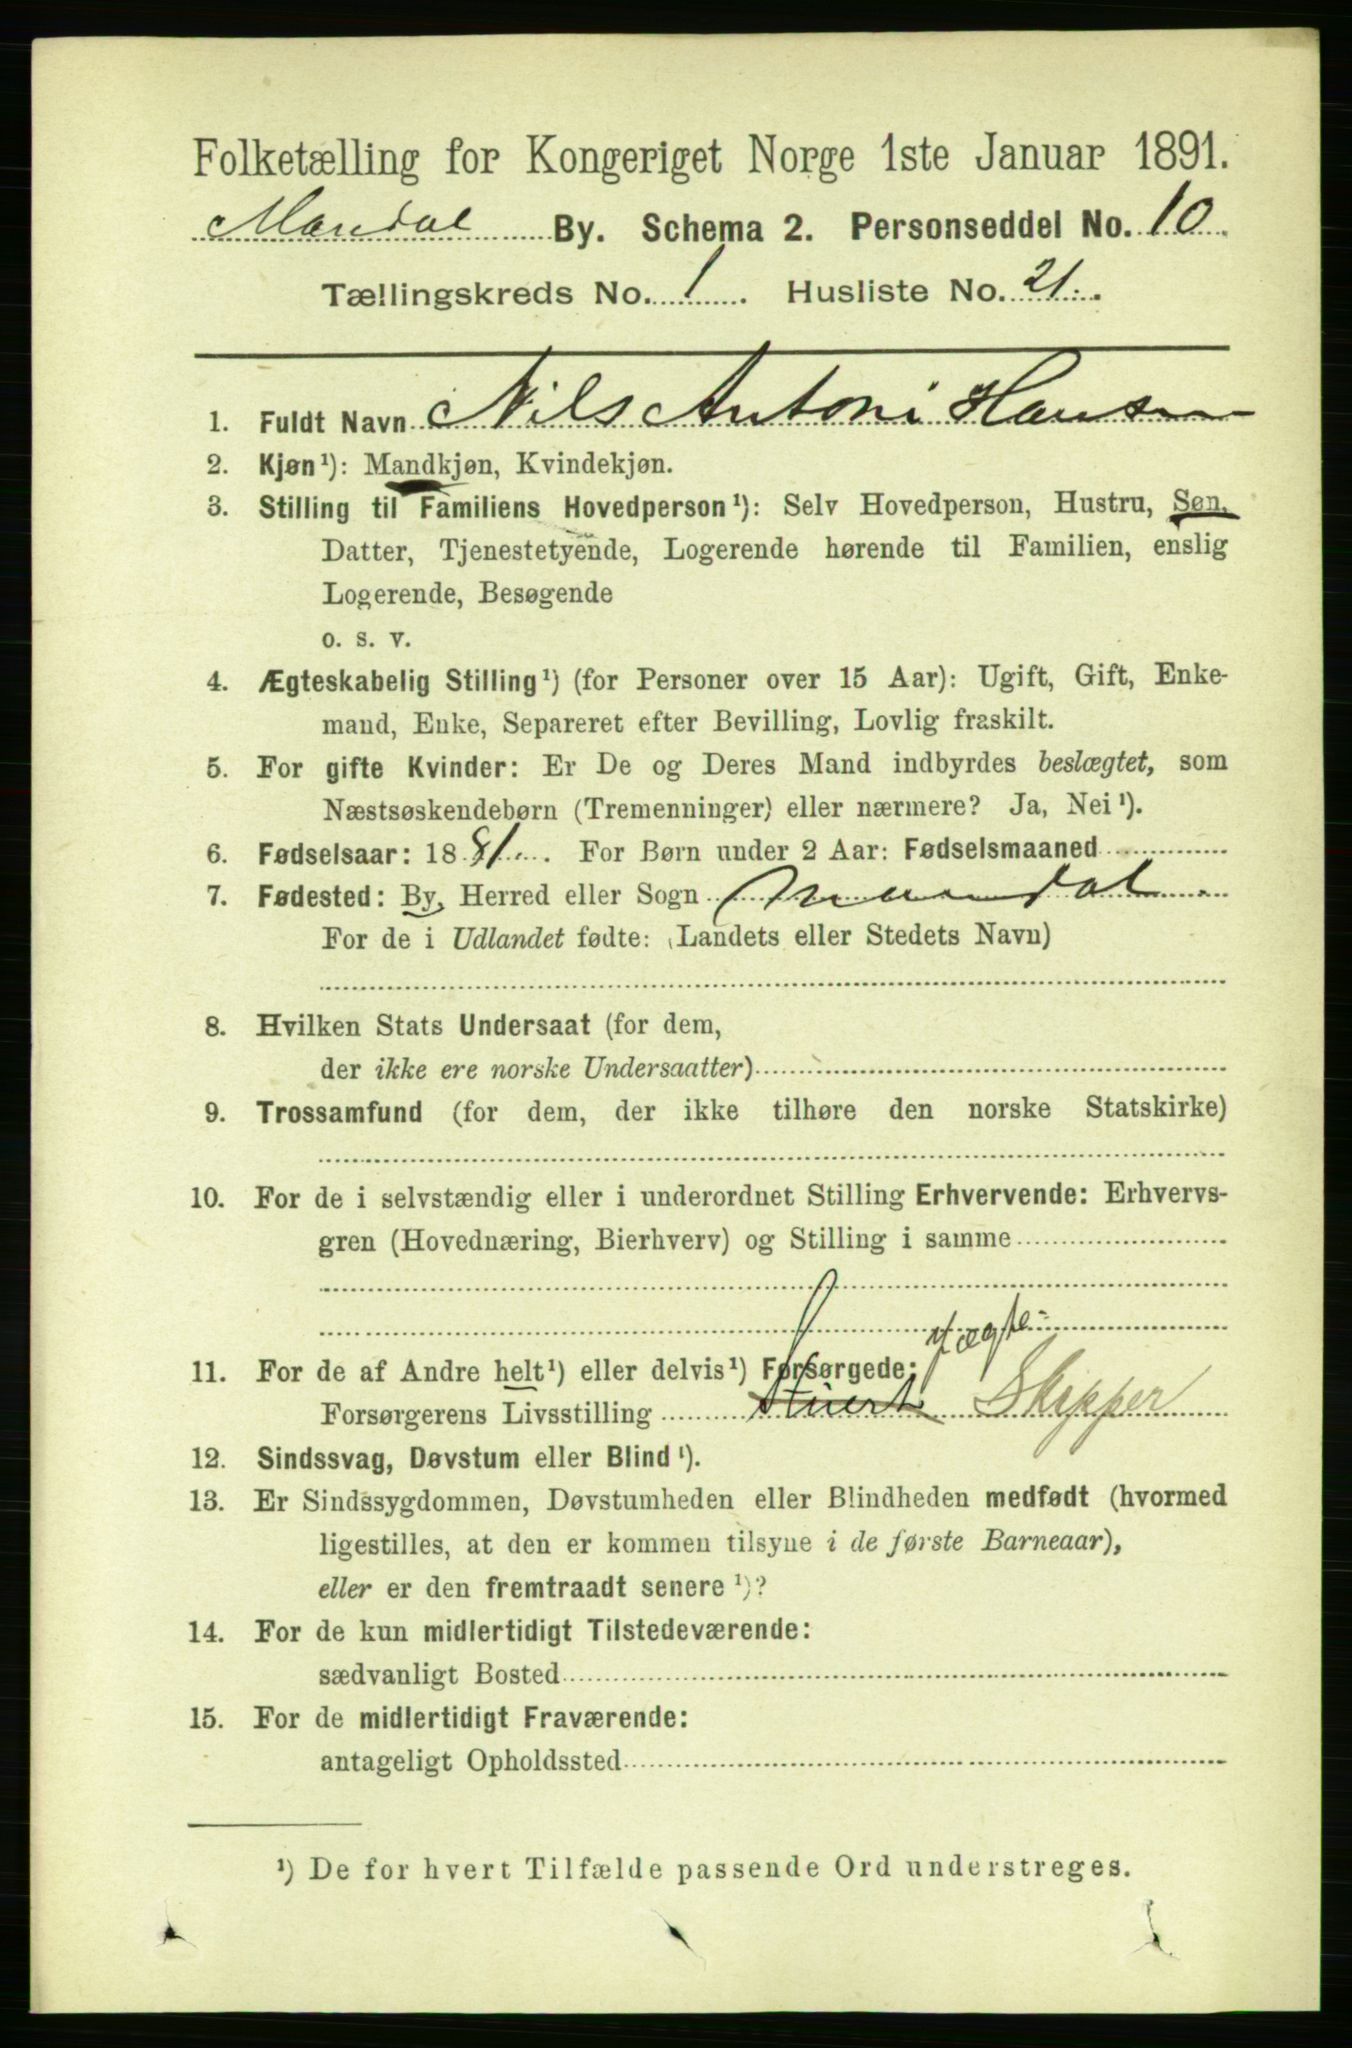 Folketælling for Kongeriget Norge 1ste Januar 1891.
Mandal By. Schema 2. Personseddel No. 10
Tællingskreds No. 1. Husliste No. 21.
1. Fuldt Navn Nils Antoni Hansen
2. Kjøn¹): Mandkjøn, Kvindekjøn.
3. Stilling til Familiens Hovedperson¹): Selv Hovedperson, Hustru, Søn,
Datter, Tjenestetyende, Logerende hørende til Familien, enslig
Logerende, Besøgende
o. s. v.
4. Ægteskabelig Stilling¹) (for Personer over 15 Aar): Ugift, Gift, Enke-
mand, Enke, Separeret efter Bevilling, Lovlig fraskilt.
5. For gifte Kvinder: Er De og Deres Mand indbyrdes beslægtet, som
Næstsøskendebørn (Tremenninger) eller nærmere? Ja, Nei¹).
6. Fødselsaar: 1881. For Børn under 2 Aar: Fødselsmaaned
7. Fødested: By, Herred eller Sogn Mandal
For de i Udlandet fødte: (Landets eller Stedets Navn)
8. Hvilken Stats Undersaat (for dem,
der ikke ere norske Undersaatter)
9. Trossamfund (for dem, der ikke tilhøre den norske Statskirke)
10. For de i selvstændig eller i underordnet Stilling Erhvervende: Erhvervs-
gren (Hovednæring, Bierhverv) og Stilling i samme
11. For de af Andre helt¹) eller delvis¹) Forsørgede:
Forsørgerens Livsstilling Skipper
12. Sindssvag, Døvstum eller Blind¹).
13. Er Sindssygdommen, Døvstumheden eller Blindheden medfødt (hvormed
ligestilles, at den er kommen tilsyne i de første Barneaar),
eller er den fremtraadt senere¹)?
14. For de kun midlertidigt Tilstedeværende:
sædvanligt Bosted
15. For de midlertidigt Fraværende:
antageligt Opholdssted
¹) De for hvert Tilfælde passende Ord understreges.